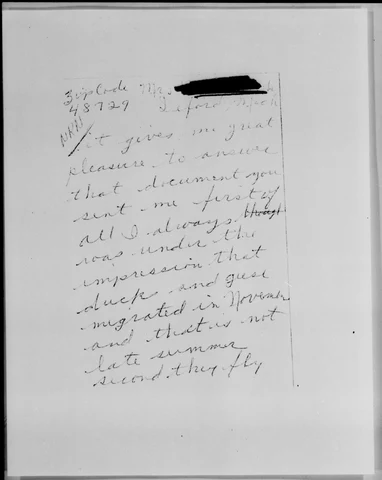 Zip Code Mrs.
48729 Deford Mich
It gives me great
pleasure to answer
that document you
sent me first of
all I always though
was under the
impression that
ducks and guse
migrated in November
and that is not
late summer
second they fly